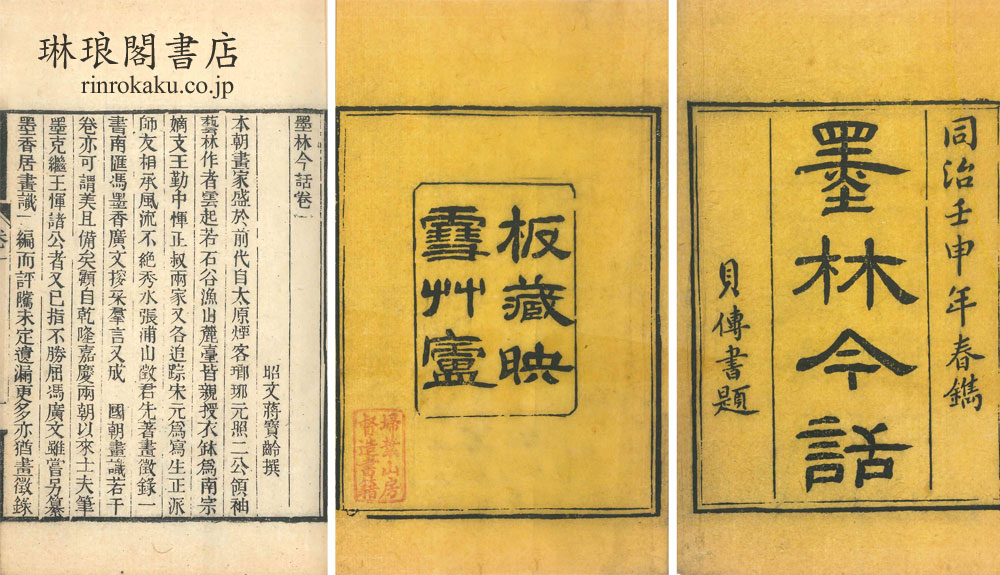 琳琅閣書店
rinrokaku.co.jp
同治壬申年春鐫
墨林今話
貝傳書題
板藏映
雪艸廬
埽葉山房
督造書籍
墨林今話卷一
昭文蔣寶齡撰
本朝畫家盛於前代自太原煙客瑯琊元照二公領袖
藝林作者雲起若石谷漁山麓臺皆親授衣鉢爲南宗
嫡支王勤中惲正叔兩家又各追踪宋元爲寫生正派
師友相承風流不絕秀水張浦山徵君先著畫徵錄一
書南匯馮墨香廣文採羣言又成 國朝畫識若干
卷亦可謂美且備矣顧自乾隆嘉慶兩朝以來士夫筆
墨克繼王惲諸公者又已指不勝屈馮廣文雖嘗另纂
墨香居畫識一編而評騭未定遺漏更多亦猶畫徵錄